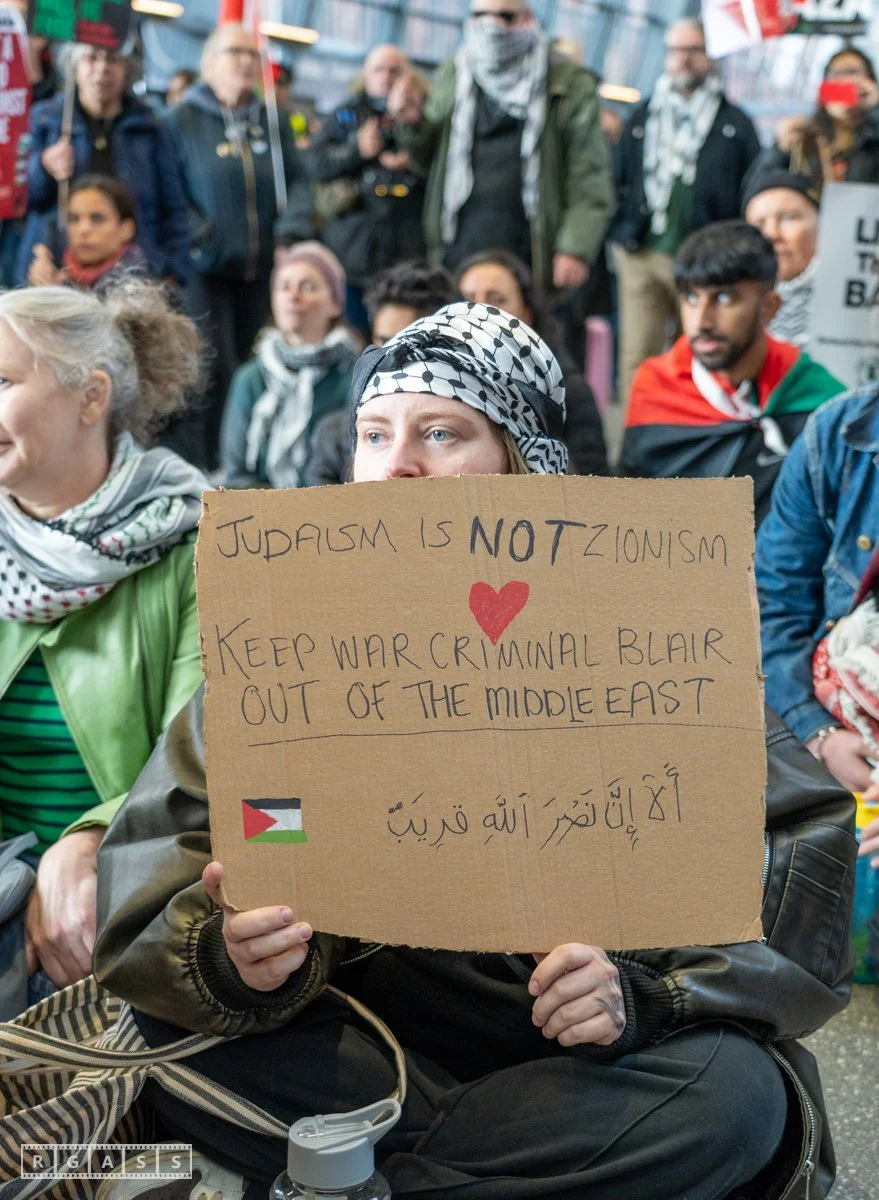 JUDAISM IS NOT ZIONISM
KEEP WAR CRIMINAL BLAIR
OUT OF THE MIDDLE EAST
أَلَآ إِنَّ نَصْرَ ٱللَّهِ قَرِيبٌ
RGASS